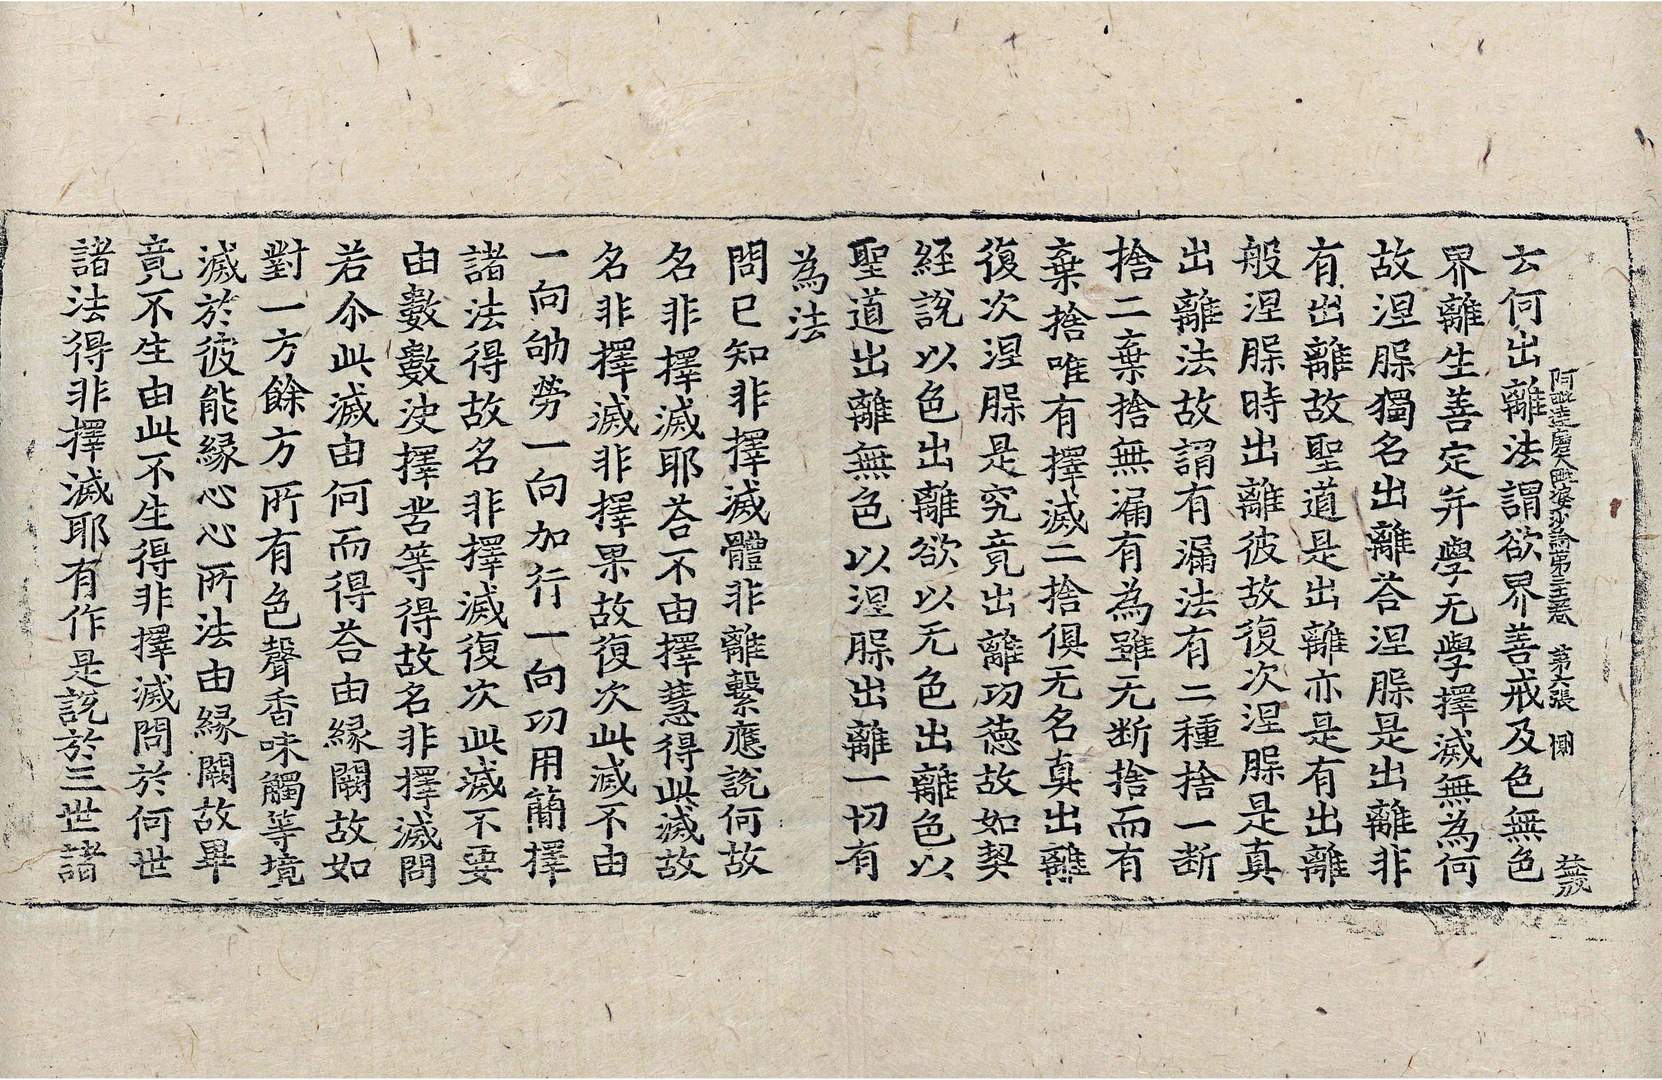 阿毗達磨大毗婆沙論第三十二卷 第六張 惻
云何出離法謂欲界善戒及色無色
界離生善定并學无學擇滅無為何
故涅槃獨名出離荅涅槃是出離非
有出離故聖道是出離亦是有出離
般涅槃時出離彼故復次涅槃是真
出離法故謂有漏法有二種捨一断
捨二棄捨無漏有為雖无断捨而有
棄捨唯有擇滅二捨俱无名真出離
復次涅槃是究竟出離功德故如契
經說以色出離欲以无色出離色以
聖道出離無色以涅槃出離一切有
為法
問已知非擇滅體非離繫應說何故
名非擇滅耶荅不由擇慧得此滅故
名非擇滅非擇果故復次此滅不由
一向劬勞一向加行一向功用簡擇
諸法得故名非擇滅復次此滅不要
由數數決擇苦等得故名非擇滅問
若尒此滅由何而得荅由緣闕故如
對一方餘方所有色聲香味觸等境
滅於彼能緣心心所法由緣闕故畢
竟不生由此不生得非擇滅問於何世
諸法得非擇滅耶有作是說於三世諸